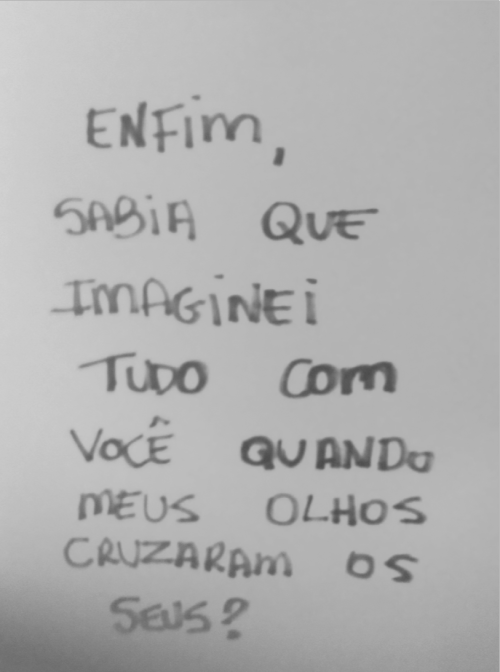 ENFim,
SABiA QUE
IMAGiNEi
TUDO COm
VOCÊ QUANDo
MEUS OLHOS
CRUZARAm OS
SEUS?